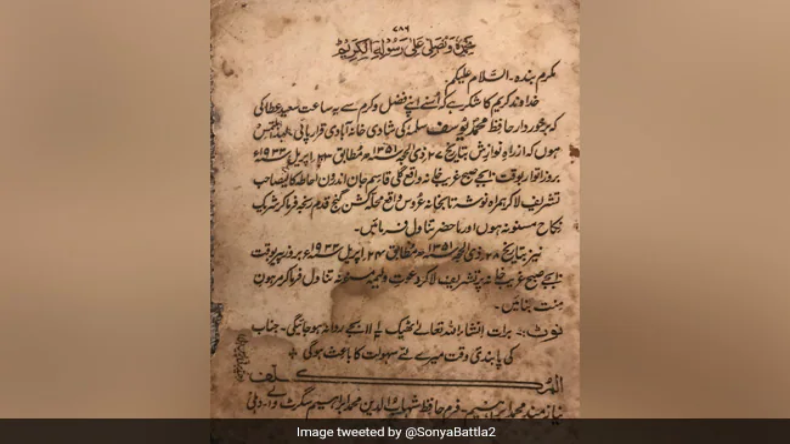 ۷۸۶
نحمدہ ونصلی علیٰ رسولہ الکریم
مکرم بندہ۔ السّلام علیکم۔
خداوند کریم کا شکر ہے کہ اُسنے اپنے فضل وکرم سے یہ ساعت سعید عطا کی
کہ برخوردار حافظ محمّد یوسف سلمہٗ کی شادی خانہ آبادی قرار پائی۔ لہذا ملتمس
ہوں کہ ازراہِ نوازش بتاریخ ۲۷؍ذی الحجہ ۱۳۵۱ھ مطابق ۲۳؍اپریل ۱۹۳۳ء
بروز اتوار بوقت ۱۰بجے صبح غریب خانہ واقع گلی قاسم جان اندرون احاطہ کالے صاحب
تشریف لاکر ہمراہ نوشہ تا بخانہ عروس واقع محلہ کشن گنج قدم رنجہ فرماکر شریک
نکاح مسنونہ ہوں اور ماحضر تناول فرمائیں۔
نیز بتاریخ ۲۸؍ذی الحجہ ۱۳۵۱ھ مطابق ۲۴؍اپریل ۱۹۳۳ء بروز پیر بوقت
۱۰بجے صبح غریب خانہ پر تشریف لاکر دعوتِ ولیمہ مسنونہ تناول فرماکر مرہونِ
منت بنائیں۔
نوٹ:۔ برات انشاء اللہ تعالےٰ ٹھیک ۱۱ بجے روانہ ہوجائیگی۔ جناب
کی پابندی وقت میرے لئے سہولت کا باعث ہوگی
المکلف
نیازمند محمد ابراہیم۔ فرم حافظ شہاب الدین محمد ابراہیم سگرٹ والے۔ دہلی
Image tweeted by @SonyaBattla2